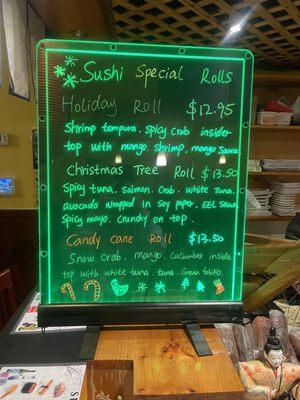 Sushi Special Rolls
Holiday Roll $12.95
Shrimp tempura, spicy crab insider
top with mango, shrimp, mango sauce
Christmas Tree Roll $13.50
Spicy tuna. Salmon. Crab. White Tuna.
avocado wrapped in Soy paper. EEL Sauce
Spicy mayo. Crundy on top.
Candy cane Roll $13.50
Snow crab, mango cucumber inside
top with white tuna. tuna. Green tobiko.